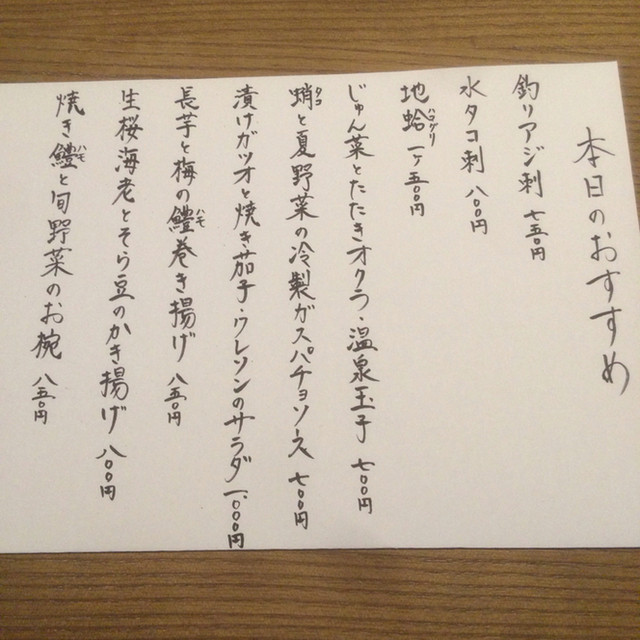 本日のおすすめ
釣りアジ刺 七五〇円
水タコ刺 八〇〇円
地蛤 ハマグリ 一ヶ五〇〇円
じゅん菜とたたきオクラ・温泉玉子 七〇〇円
蛸 タコ と夏野菜の冷製ガスパチョソース 七〇〇円
漬けガツオと焼き茄子・クレソンのサラダ 一、〇〇〇円
長芋と梅の鱧 ハモ 巻き揚げ 八五〇円
生桜海老とそら豆のかき揚げ 八〇〇円
焼き鱧 ハモ と旬野菜のお椀 八五〇円